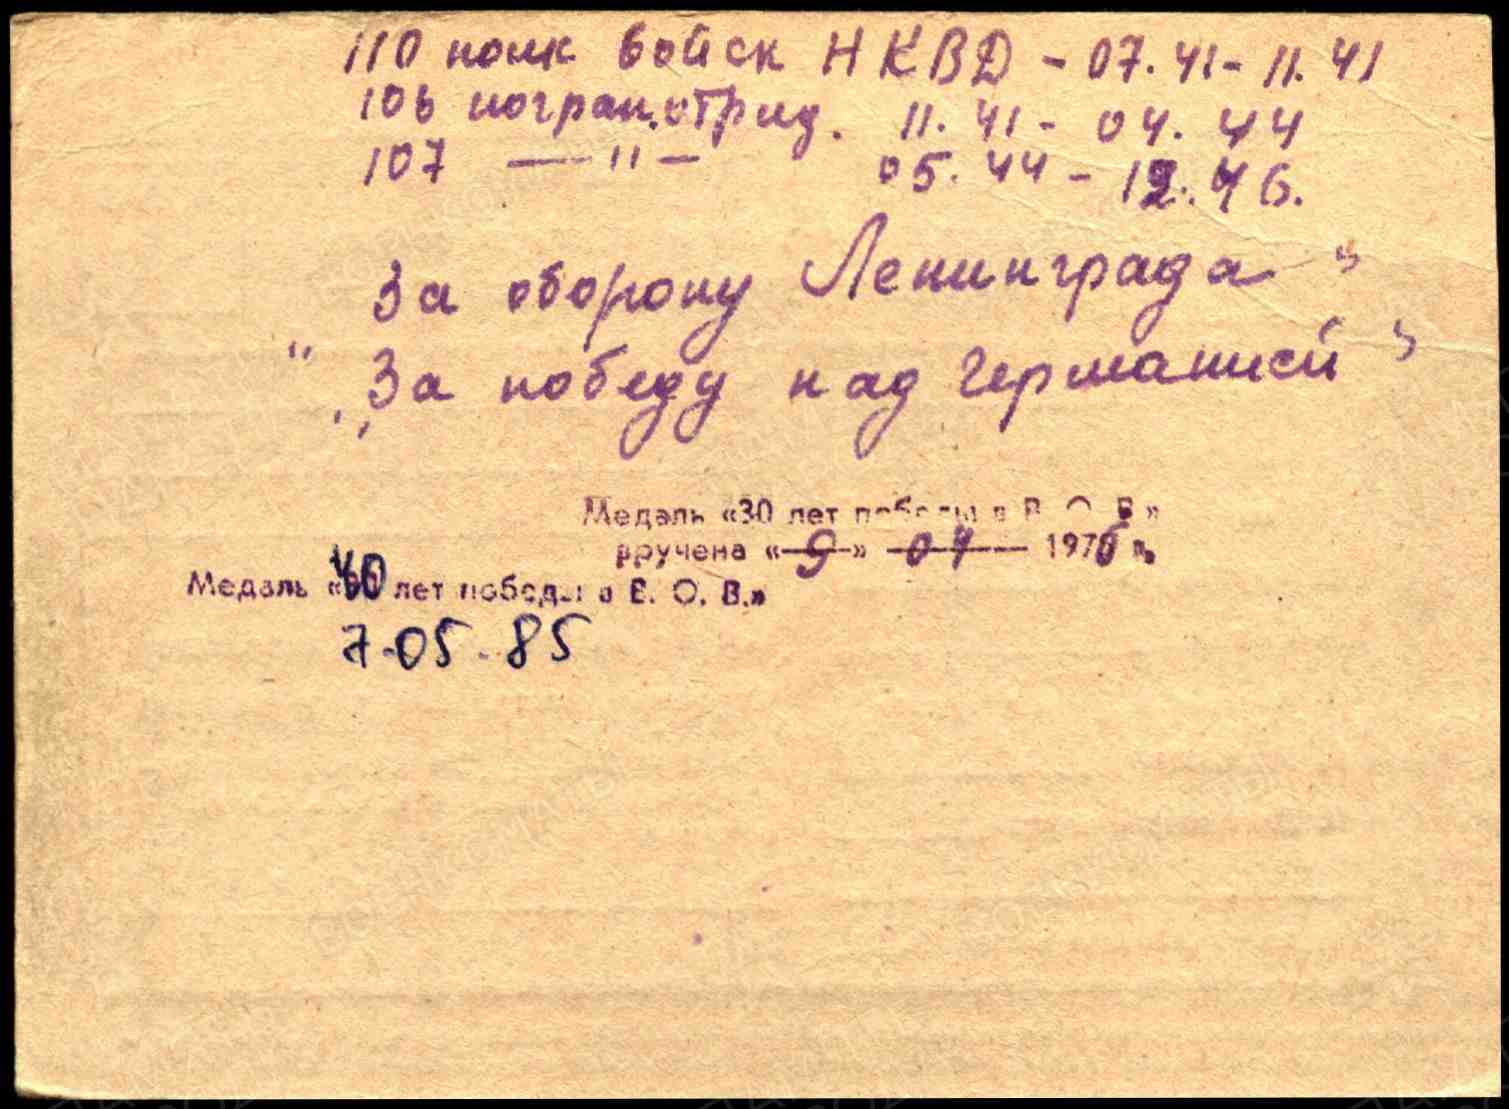 110 полк войск НКВД - 07.41 - 11.41
106 погран.отряд. 11.41 - 04.44
107 —— " — 05.44 - 12.46.
За оборону Ленинграда"
" „За победу над Германией"
Медаль «30 лет победы в В. О. В»
вручена «9» 1976 г.
Медаль «40 лет победы в В. О. В.»
7-05-85